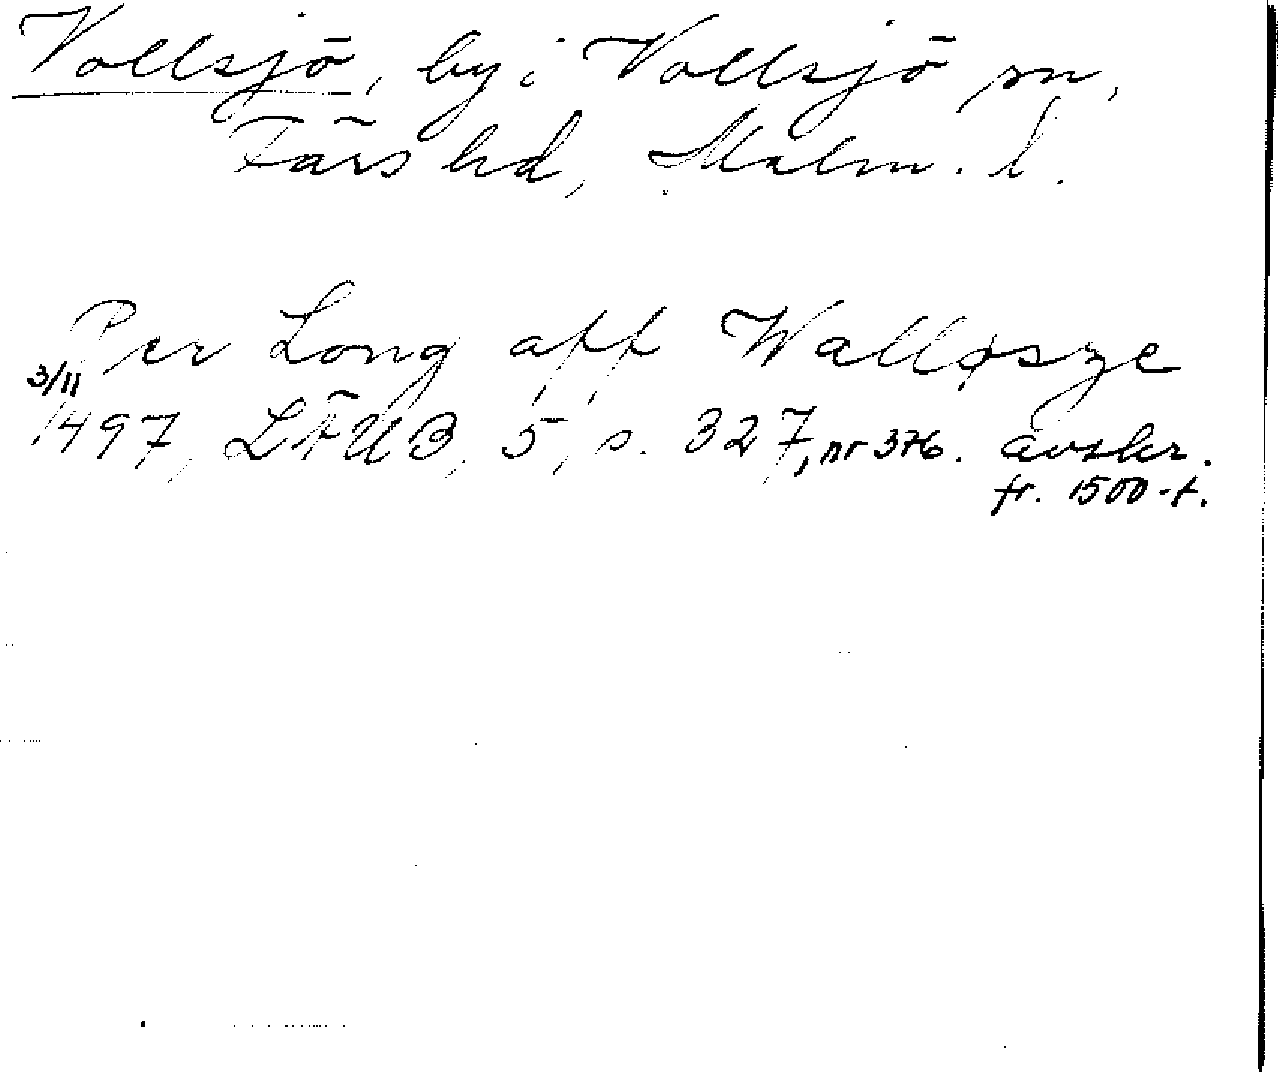 Vollsjö, by i Vollsjö sn,
Färs hd, Malm. l.
Per Long aff Walløsze
3/11
1497, LÄUB, 5, s. 327, nr 376. avskr.
fr. 1500-t.